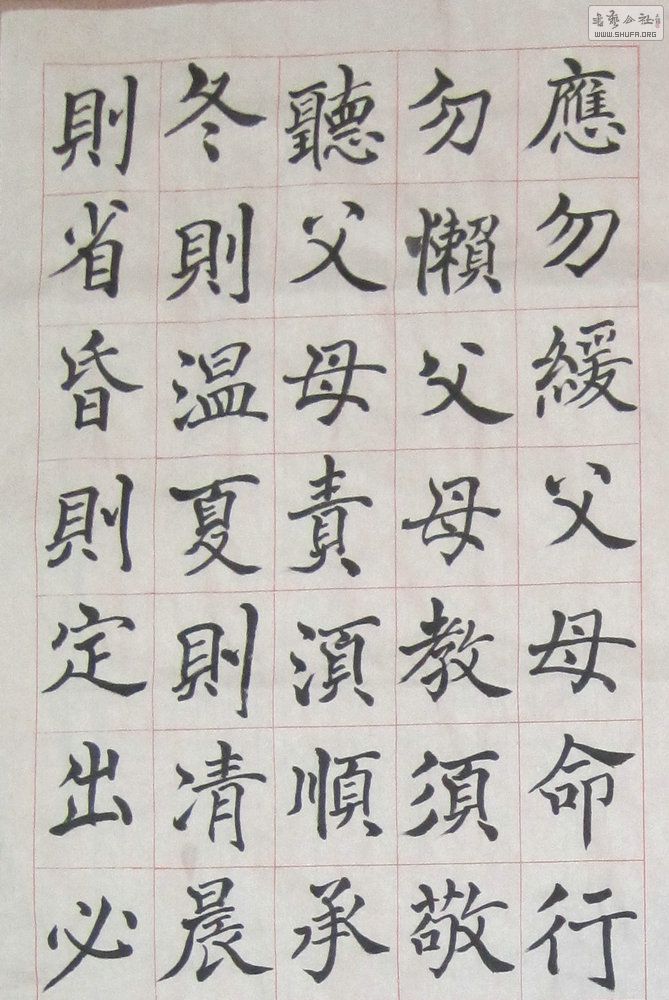 應勿緩父母命行
勿懶父母教須敬
聽父母責湏順承
冬則温夏則清晨
則省昏則定出必
書藝公社
WWW.SHUFA.ORG